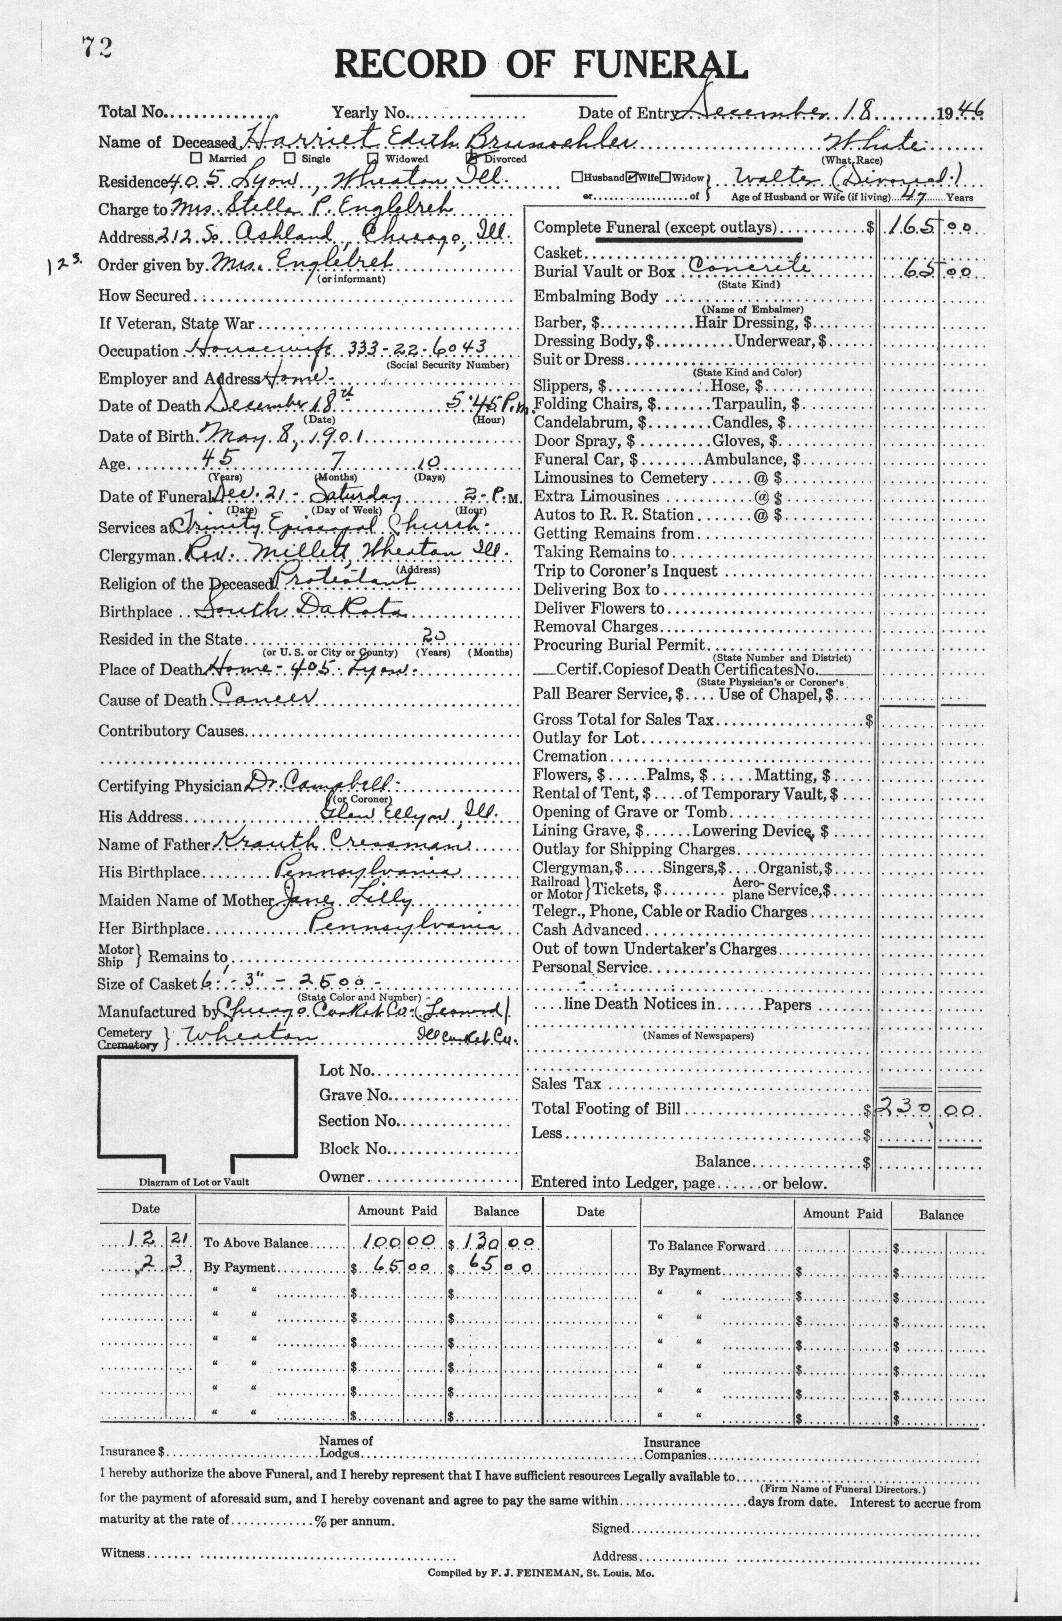 72
RECORD OF FUNERAL
Total No. Yearly No. Date of Entry December 18 1946
Name of Deceased Harriet Edith Brunoehler White
☐ Married ☐ Single ☐ Widowed ☑ Divorced (What Race)
Residence 405 Lyon, Wheaton Ill. ☐Husband☑Wife☐Widow} Walter (Divorced)
or of } Age of Husband or Wife (if living) 47 Years
Charge to Mrs. Stella P. Englebreh
Address 212 So Ashland, Chicago, Ill.
123. Order given by Mrs. Englebreh
(or informant)
How Secured
If Veteran, State War
Occupation Housewife 333-22-6043
(Social Security Number)
Employer and Address Home-
Date of Death December 18th 5:45 P.m.
(Date) (Hour)
Date of Birth May 8, 1901
Age 45 7 10
(Years) (Months) (Days)
Date of Funeral Dec. 21 - Saturday 2- P.M.
(Date) (Day of Week) (Hour)
Services at Trinity Episcopal Church-
Clergyman Rev. Millett, Wheaton Ill.
(Address)
Religion of the Deceased Protestant
Birthplace South Dakota
Resided in the State 20
(or U. S. or City or County) (Years) (Months)
Place of Death Home - 405 Lyon-
Cause of Death Cancer
Contributory Causes
Certifying Physician Dr. Campbell-
(or Coroner)
His Address Glen Ellyn, Ill.
Name of Father Krauth Cressman
His Birthplace Pennsylvania
Maiden Name of Mother Jane Lilly
Her Birthplace Pennsylvania
Motor Ship } Remains to
Size of Casket 6' - 3" - 2500 -
(State Color and Number)
Manufactured by Chicago Casket Co.
Cemetery Crematory } Wheaton Ill Casket Co.
Lot No.
Grave No.
Section No.
Block No.
Owner
Diagram of Lot or Vault
Complete Funeral (except outlays) $ 165 00
Casket
Burial Vault or Box Concrete 65 00
(State Kind)
Embalming Body
(Name of Embalmer)
Barber, $ Hair Dressing, $
Dressing Body, $ Underwear, $
Suit or Dress
(State Kind and Color)
Slippers, $ Hose, $
Folding Chairs, $ Tarpaulin, $
Candelabrum, $ Candles, $
Door Spray, $ Gloves, $
Funeral Car, $ Ambulance, $
Limousines to Cemetery @ $
Extra Limousines @ $
Autos to R. R. Station @ $
Getting Remains from
Taking Remains to
Trip to Coroner's Inquest
Delivering Box to
Deliver Flowers to
Removal Charges
Procuring Burial Permit
(State Number and District)
Certif.Copiesof Death CertificatesNo.
(State Physician's or Coroner's
Pall Bearer Service, $ Use of Chapel, $
Gross Total for Sales Tax $
Outlay for Lot
Cremation
Flowers, $ Palms, $ Matting, $
Rental of Tent, $ of Temporary Vault, $
Opening of Grave or Tomb
Lining Grave, $ Lowering Device, $
Outlay for Shipping Charges
Clergyman, $ Singers,$ Organist,$
Railroad or Motor } Tickets, $ Aero-plane Service,$
Telegr., Phone, Cable or Radio Charges
Cash Advanced
Out of town Undertaker's Charges
Personal Service
line Death Notices in Papers
(Names of Newspapers)
Sales Tax
Total Footing of Bill $ 230 00
Less $
Balance $
Entered into Ledger, page or below.
Date Amount Paid Balance Date Amount Paid Balance
12 21 To Above Balance 100 00 $ 130 00 To Balance Forward $
2 3 By Payment $ 65 00 $ 65 00 By Payment $ $
" " $ $ " " $ $
" " $ $ " " $ $
" " $ $ " " $ $
" " $ $ " " $ $
" " $ $ " " $ $
" " $ $ " " $ $
Insurance $ Names of Lodges Insurance Companies
I hereby authorize the above Funeral, and I hereby represent that I have sufficient resources Legally available to
(Firm Name of Funeral Directors.)
for the payment of aforesaid sum, and I hereby covenant and agree to pay the same within days from date. Interest to accrue from
maturity at the rate of % per annum.
Signed
Witness Address
Compiled by F. J. FEINEMAN, St. Louis, Mo.